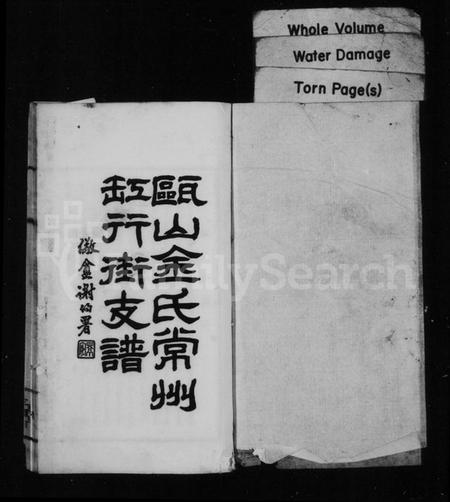 Whole Volume
Water Damage
Torn Page(s)
甌山余氏常州
缸行街支譜
FamilySearch